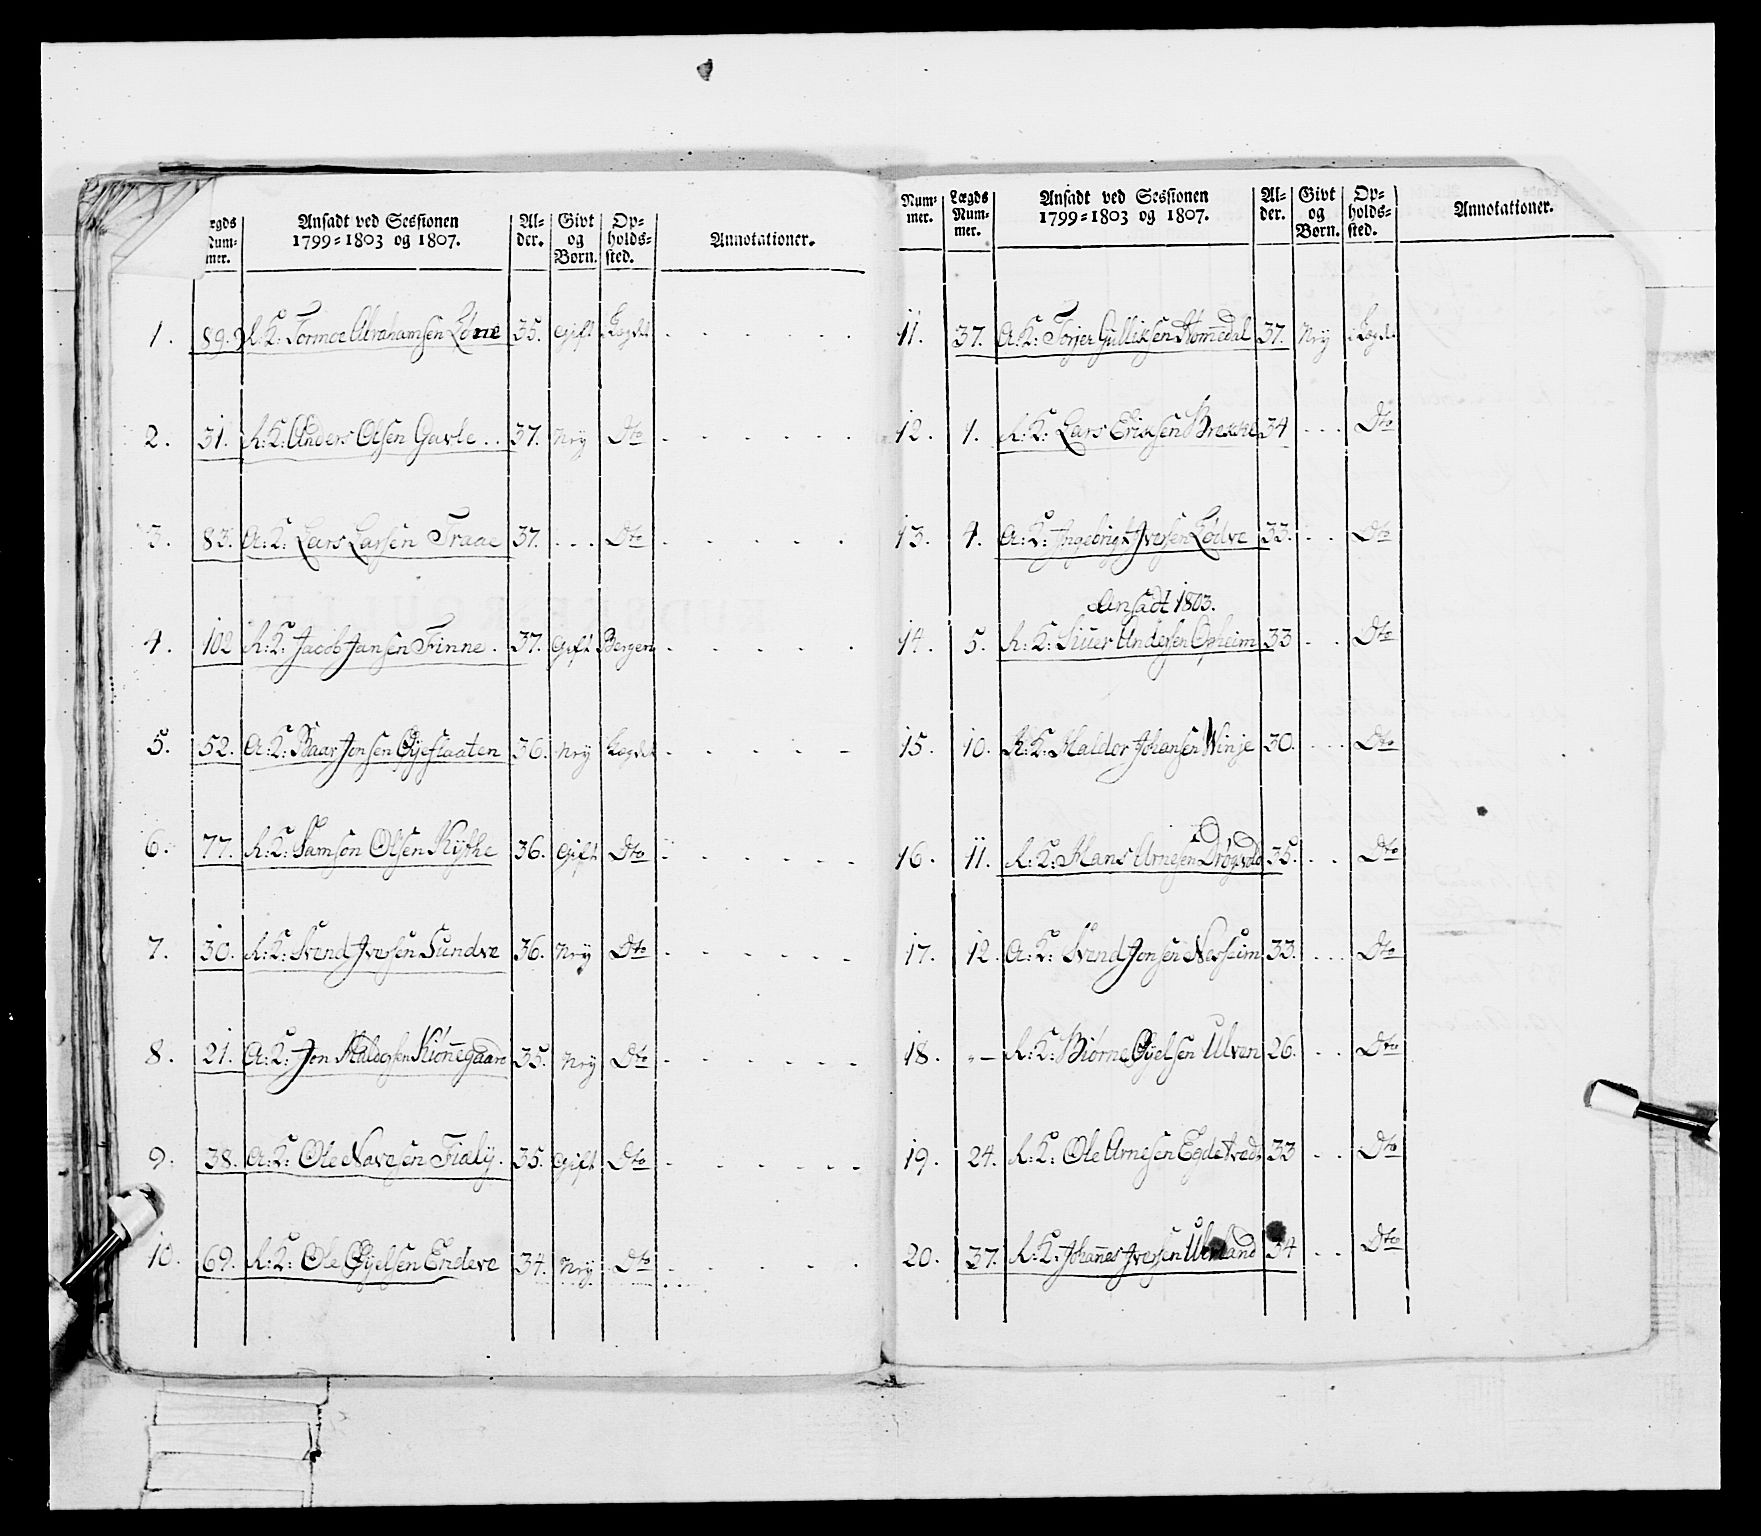 Lægds Num- mer. | Ansadt ved Sessionen 1799=1803 og 1807. | Al- der. | Givt og Børn. | Op- holds- sted. | Annotationer.
1. 89. A:K: Tormoe Abrahamsen 35. Gift i Lægdet
2. 31. A:K: Anders Olsen Gavle.. 37. Nej Dto
3. 83. A:K: Lars Larsen Traae 37. ... Dto
4. 102 A:K: Jacob Jansen Finne. 37. Gift Bergen
5. 52. A:K: Baar Jonsen 36. Nej Lægdet
6. 77. A:K: Samson Olsen Kythe 36. Gift Dto
7. 30. A:K: Svend Iversen Sundve 36. Nej Dto
8. 21. A:K: Jon Haldorsen 35. Nej Dto
9. 38. A:K: Ole Navesen Fialy. 35. Gift Dto
10. 69. A:K: Ole Endeve 34. Nej Dto
Num- mer. | Lægds Num- mer. | Ansadt ved Sessionen 1799=1803 og 1807. | Al- der. | Givt og Børn. | Op- holds- sted. | Annotationer.
11. 37. A:K: Torjer Gulliksen 37. Nej i Lægdet
12. 1. A:K: Lars Eriksen 34 ... Dto
13. 4. A:K: Ingebrigt Iversen Lødve 33. .. Dto
Ansadt 1803.
14. 5. A:K: Siuer Andersen Opheim 33 .. Dto
15. 10. A:K: Haldor Johansen Winje 30. ... Dto
16. 11. A:K: Hans Arnesen 35. .. Dto
17. 12. A:K: Svend Jonsen 33. ... Dto
18. „— A:K: Biørne Ulven 26. .. Dto
19. 24. A:K: Ole Arnesen 33 .. Dto
20. 37. A:K: Johannes Iversen 34 .. Dto